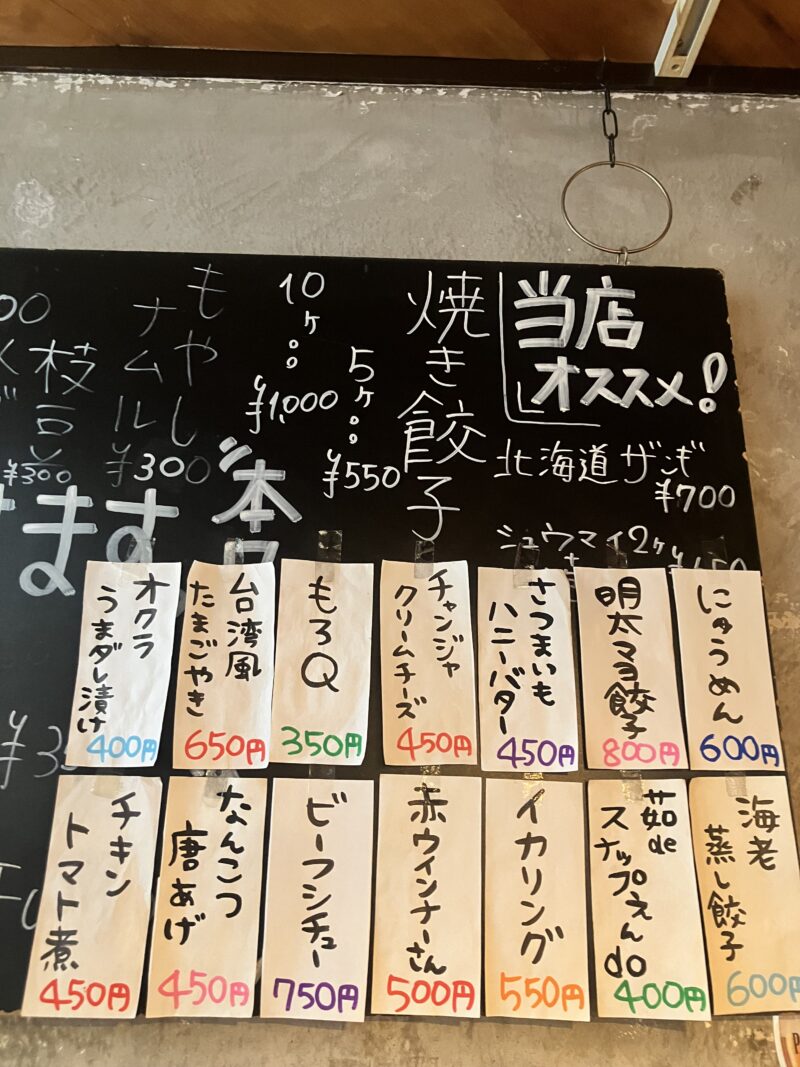 当店
オススメ!
北海道ザンギ
¥700
シュウマイ2ケ
焼き餃子
5ケ。。
¥550
10ケ。。
¥1,000
もやし
ナムル
¥300
枝豆
¥300
ます
本
にゅうめん
600円
明太マヨ餃子
800円
さつまいも
ハニーバター
450円
チャンジャ
クリームチーズ
450円
もろQ
350円
台湾風
たまごやき
650円
オクラ
うまダレ漬け
400円
海老
蒸し餃子
600円
茹de
スナップえんdo
400円
イカリング
550円
赤ウィンナーさん
500円
ビーフシチュー
750円
なんこつ
唐あげ
450円
チキン
トマト煮
450円